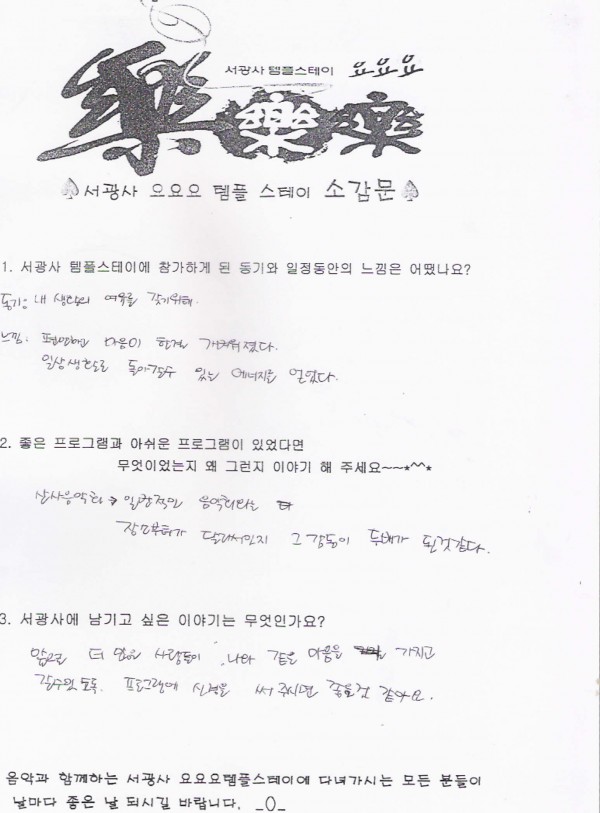 서광사 템플스테이 요요요
樂樂樂
서광사 요요요 템플 스테이 소감문
1. 서광사 템플스테이에 참가하게 된 동기와 일정동안의 느낌은 어땠나요?
동기: 내 생활의 여유를 갖기위해.
느낌. 편안해 마음이 한결 가벼워졌다.
일상생활로 돌아갈수 있는 에너지를 얻었다.
2. 좋은 프로그램과 아쉬운 프로그램이 있었다면
무엇이었는지 왜 그런지 이야기 해 주세요~~*^^*
산사음악회 → 일상적인 음악회와는
장소부터가 달라서인지 그 감동이 두배가 된것같다.
3. 서광사에 남기고 싶은 이야기는 무엇인가요?
앞으로 더 많은 사람들이 나와 같은 마음을 가지고
갈수있도록. 프로그램에 신경을 써 주시면 좋을것 같아요.
음악과 함께하는 서광사 요요요템플스테이에 다녀가시는 모든 분들이
날마다 좋은 날 되시길 바랍니다. _()_